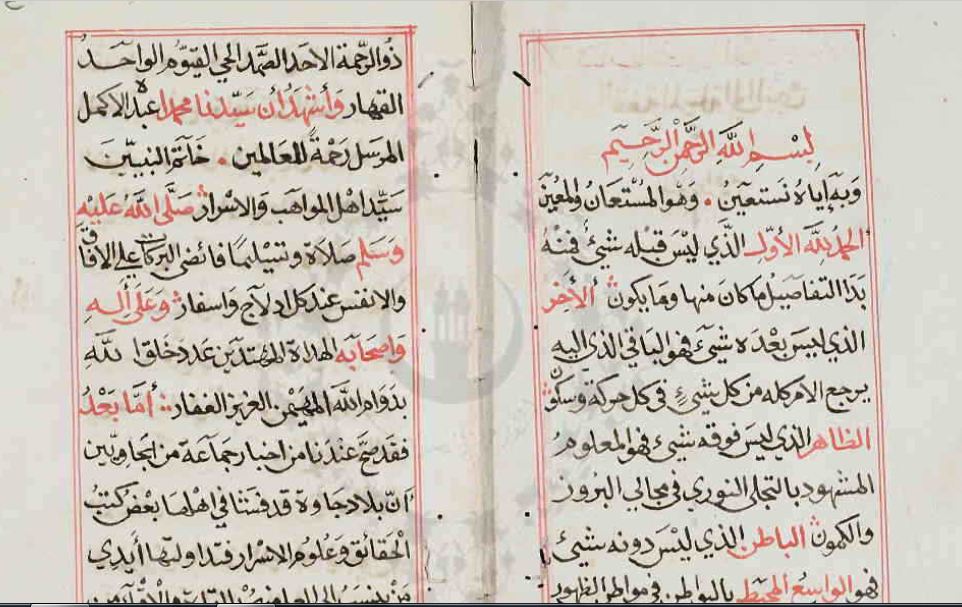 بسم الله الرحمن الرحيم
وبه إياه نستعين وهو المستعان والمعين
الحمد لله الأول الذي ليس قبله شيئ فمنه
بدا التفاصيل ما كان منها وما يكون الأخر
الذي ليس بعده شيئ فهو الباقي الذي إليه
يرجع الامر كله من كل شيئ في كل حركة وسكون
الظاهر الذي ليس فوقه شيئ فهو المعلوم
المشهود بالتجلى النوري في مجالي البروز
والكمون الباطن الذي ليس دونه شيئ
فهو الواسع المحيط بالبواطن في مواطن الظهور
ذو الرحمة الاحد الصمد الحي القيوم الواحد
القهار وأشهد أن سيدنا محمدا عبده الاكمل
المرسل رحمة للعالمين خاتم النبيين
سيد اهل المواهب والاسرار صلى الله عليه
وسلم صلاة وتسليما فائضى البركات على الافاق
والانفس عند كل ادلاج واسفار وعلى أله
واصحابه الهداة المهتدين عدد خلق الله
بدوام الله المهيمن العزيز الغفار أما بعد
فقد صح عندنا من اخبار جماعة من الجاويين
أن بلاد جاوة قد فشتا في اهلها بعض كتب
الحقائق وعلوم الاسرار فتداولتها أيدي
من ينسب إلى العلم